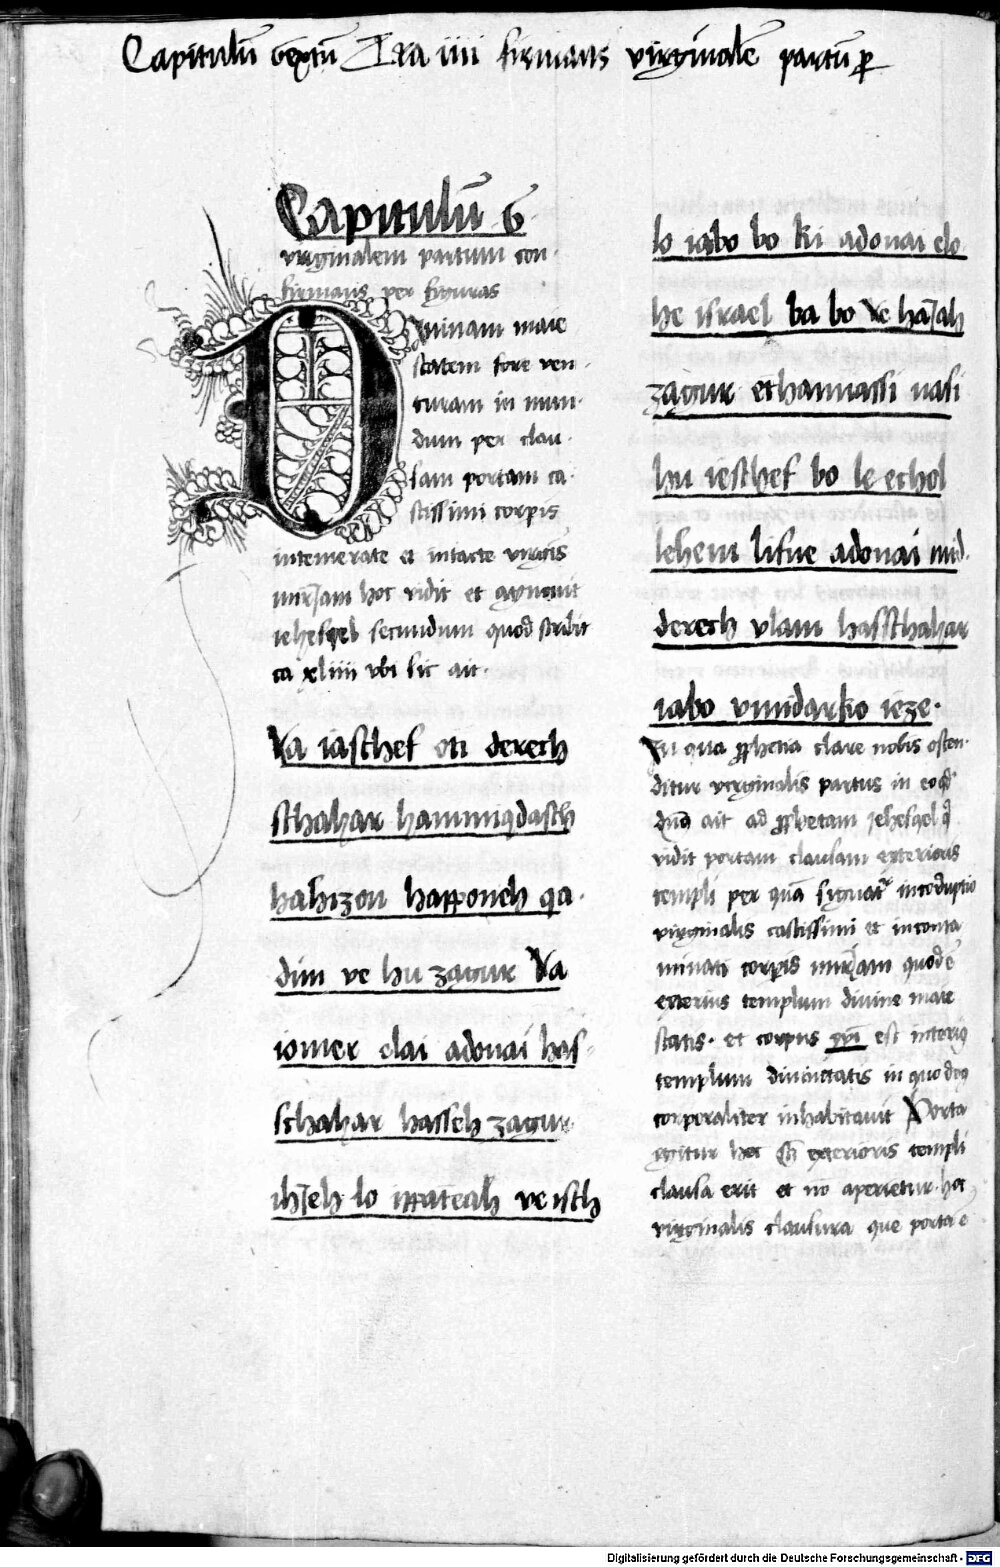 Capitulū sextū Lra iiii firmans virginalē partū ꝑ
Capitulū 6
virginalem partum con-
firmans per figuras
Diuinam maie
statem fore ven-
turam in mun-
dum per clau-
sam portam ca-
stissimi corpis
intemerate et intacte virgīs
mirjam hoc vidit et agnouit
iehesqel secundum quod scribit
ca xliiii vbi sic ait.
Va iaschef oti derech
schahar hammiqdasch
hahizon happoneh qa-
dim ve hu zagur Va
iomer elai adonai has-
schahar hasseh zagur
ihjeh lo ippateah ve isch
lo iabo bo ki adonai elo
he israel ba bo Ve hajah
zagur ethannassi nasi
hu ieschef bo le echol
lehem lifne adonai mid-
derech vlam hasschahar
iabo vmidarko ieze.
In qua ꝓphetia clare nobis osten-
ditur virginalis partus in eo qđ
dn̄s ait ad ꝓphetam jehesqel qđ
vidit portam clausam exterioris
templi per quā signatr incorruptio
virginalis castissimi et inconta
minati corpis mirjam quod ē
exterius templum diuine maie
statis. et corpus xp̄i est interiꝯ
templum diuinitatis in quo deꝯ
corporaliter inhabitauit Porta
igitur hec sc̄i exterioris templi
clausa erit et nō aperietur. hec
virginalis clausura que porta ē